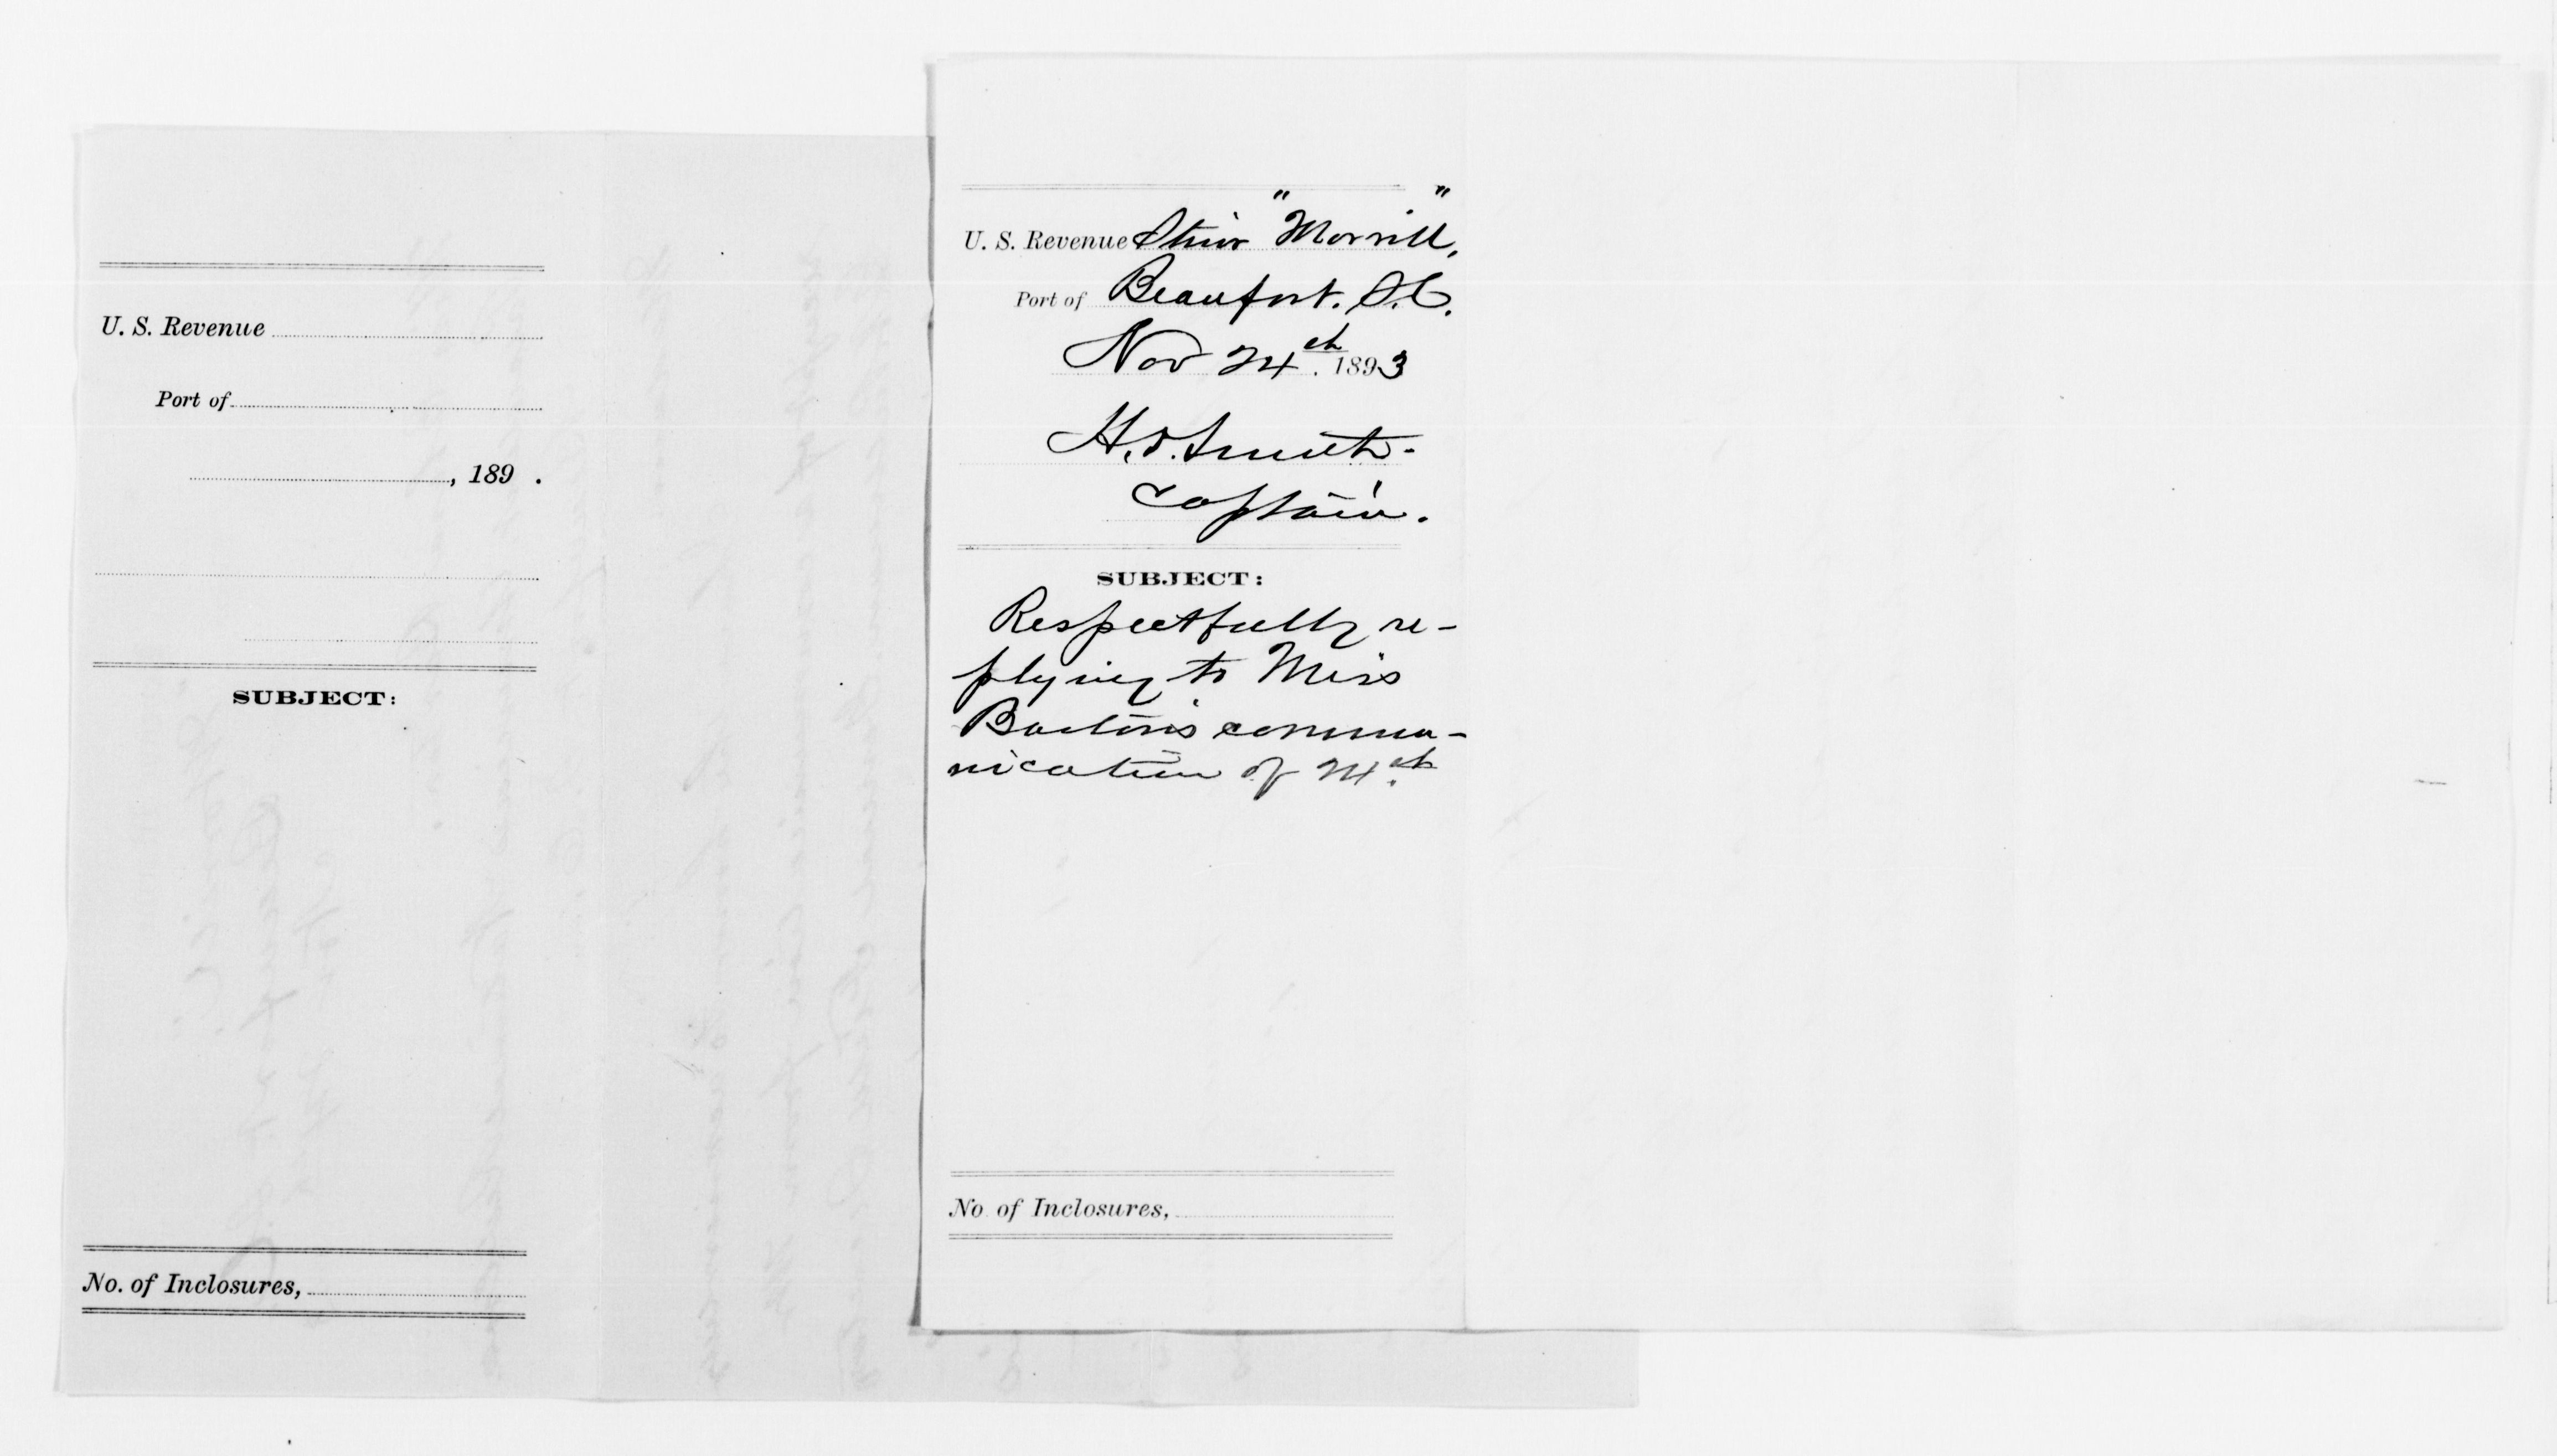 U. S. Revenue
Port of
, 189 .
SUBJECT:
No. of Inclosures,
U. S. Revenue Stmr "Morrill",
Port of Beaufort. S.C.
Nov 24th. 1893
H.D. Smith.
Captain.
SUBJECT:
Respectfully re-
plying to Miss
Barton's commu-
nication of 24th.
No. of Inclosures,